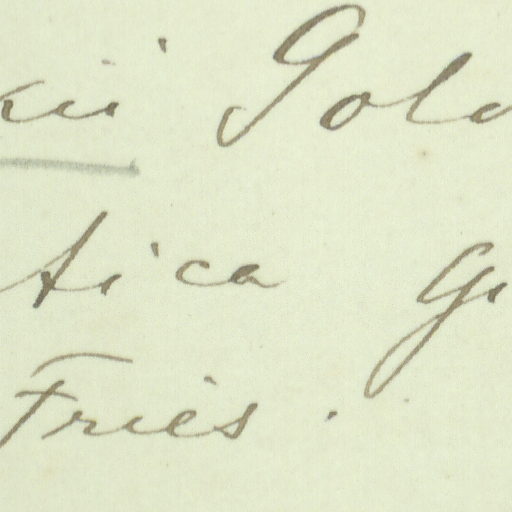 kii Gold
tica Gr
Fries.